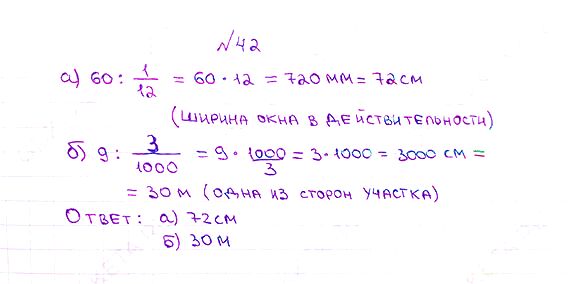 №42
а) 60 : 1/12 = 60 · 12 = 720 мм = 72 см
(ширина окна в действительности)
б) 9 : 3/1000 = 9 · 1000/3 = 3 · 1000 = 3000 см =
= 30 м (одна из сторон участка)
Ответ: а) 72 см
б) 30 м